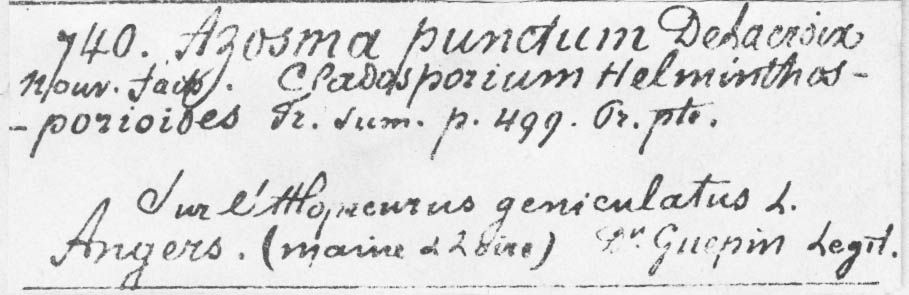 740. Azosma punctum DeLacroix
nouv. faits. Cladosporium Helminthos-
-porioides Fr. Sum. p. 499. Pr. pte.
Sur l'Alopecurus geniculatus L.
Angers. (maine & Loire) Dr. Guepin Legit.